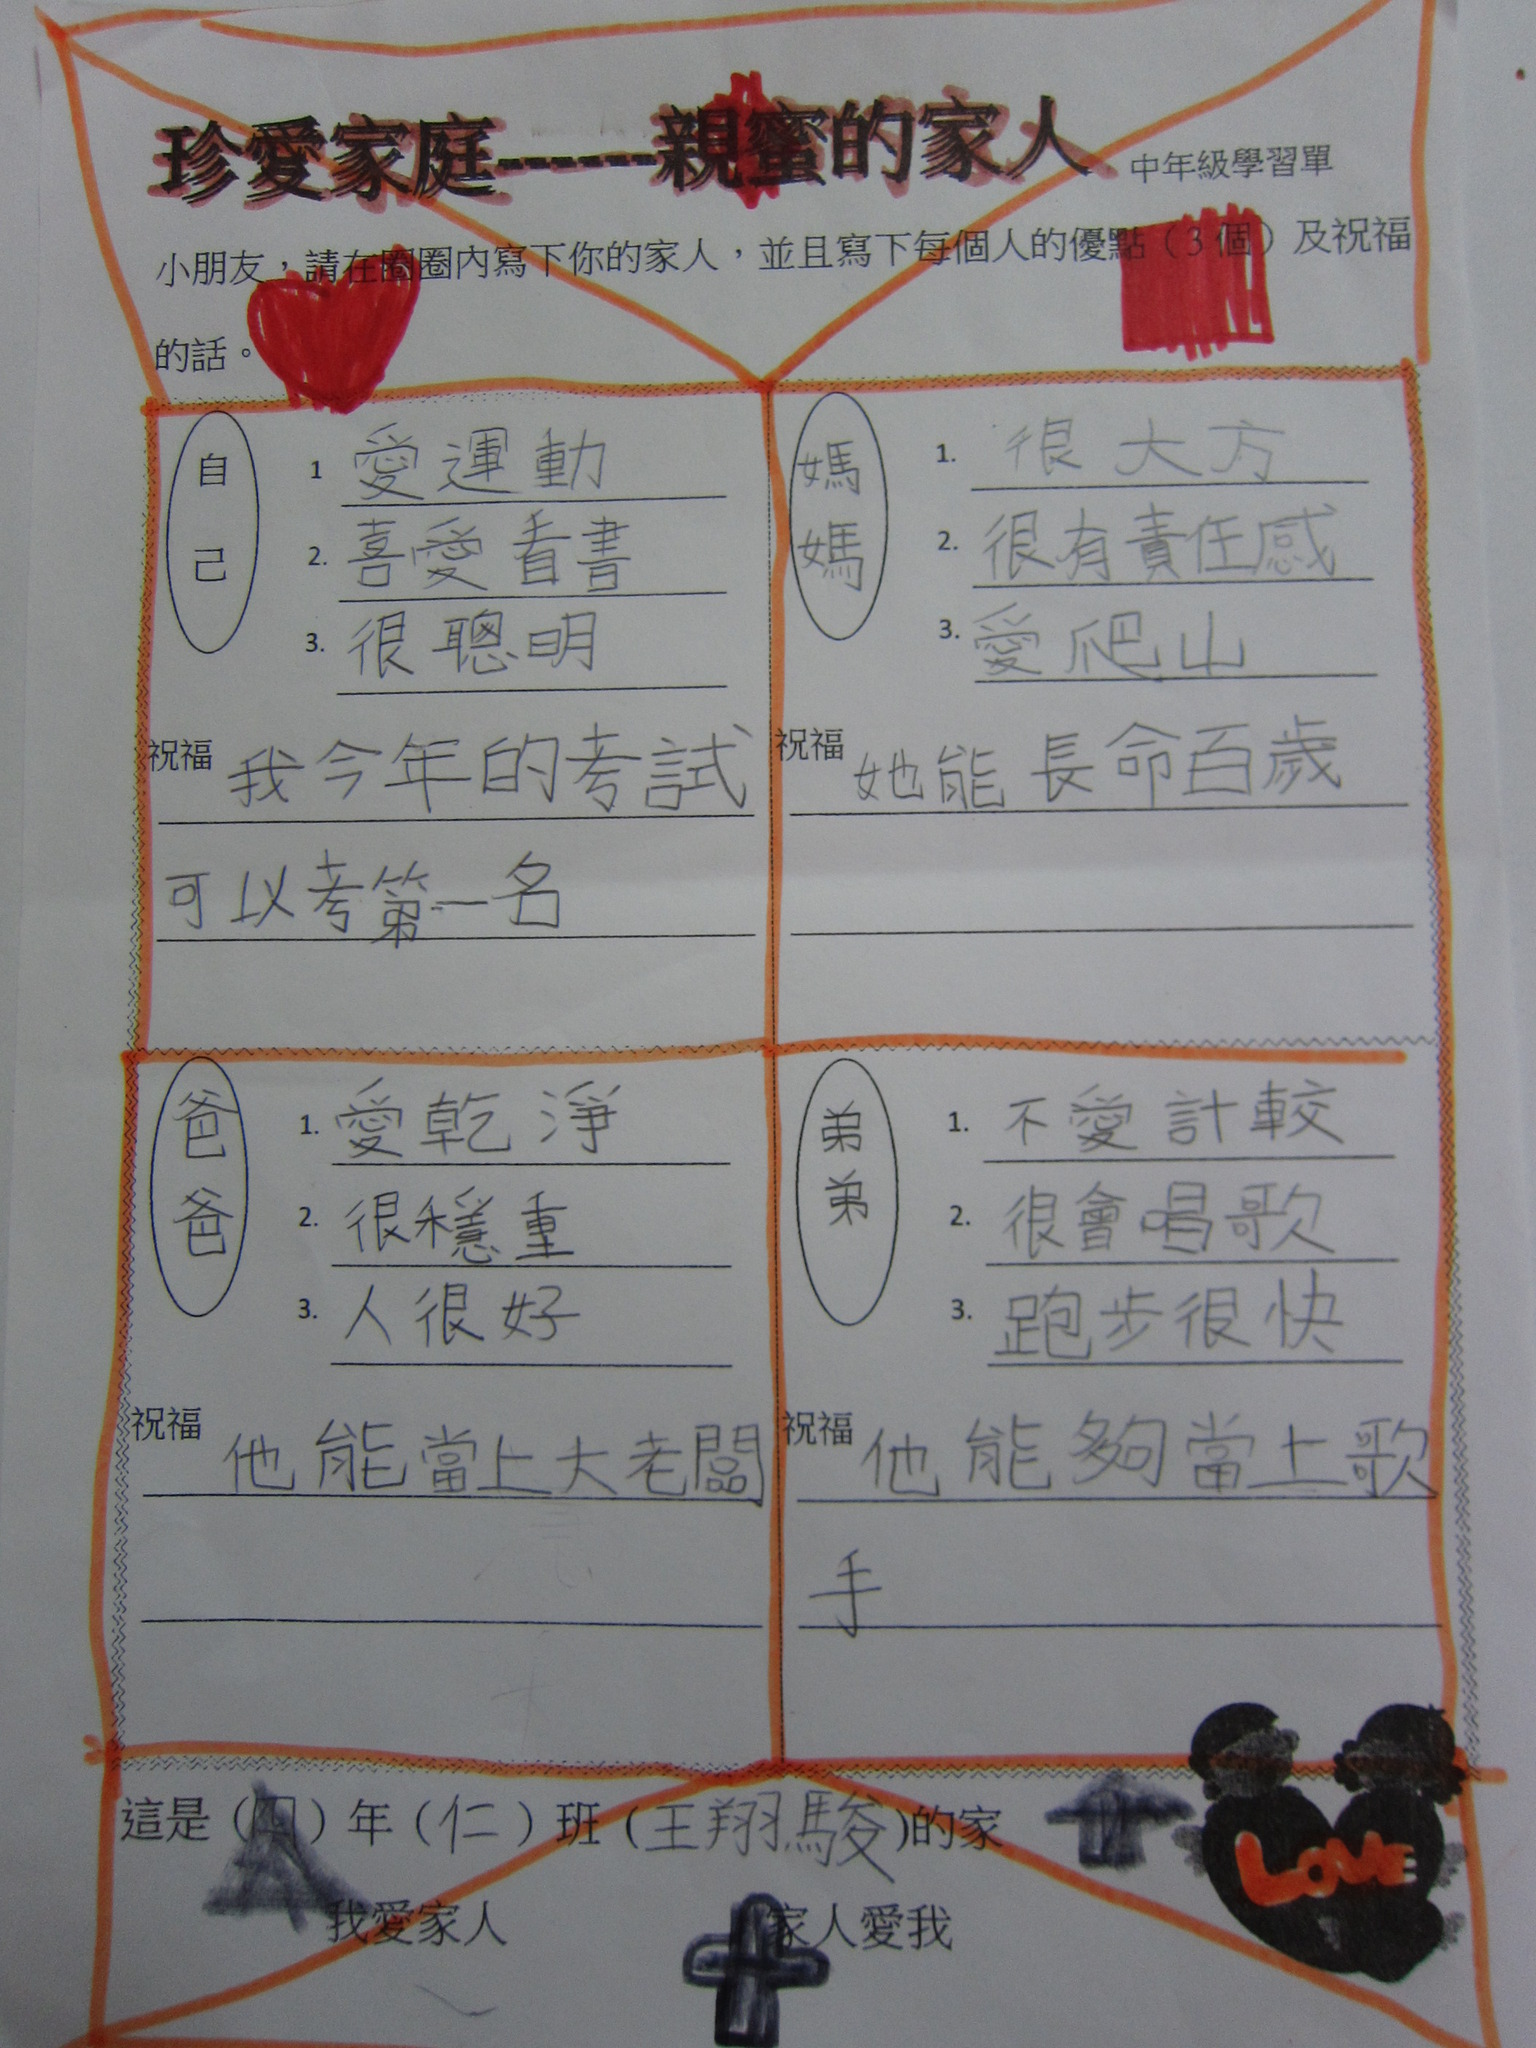 珍愛家庭------親蜜的家人 中年級學習單
小朋友，請在圈圈內寫下你的家人，並且寫下每個人的優點（3 個）及祝福
的話。
自己
1 愛運動
2. 喜愛看書
3. 很聰明
祝福 我今年的考試
可以考第一名
媽媽
1. 很大方
2. 很有責任感
3. 愛爬山
祝福 她能長命百歲
爸爸
1. 愛乾淨
2. 很穩重
3. 人很好
祝福 他能當上大老闆
弟弟
1. 不愛計較
2. 很會唱歌
3. 跑步很快
祝福 他能夠當上歌
手
這是（四）年（仁）班（王翔駿)的家
我愛家人 家人愛我
LOVE